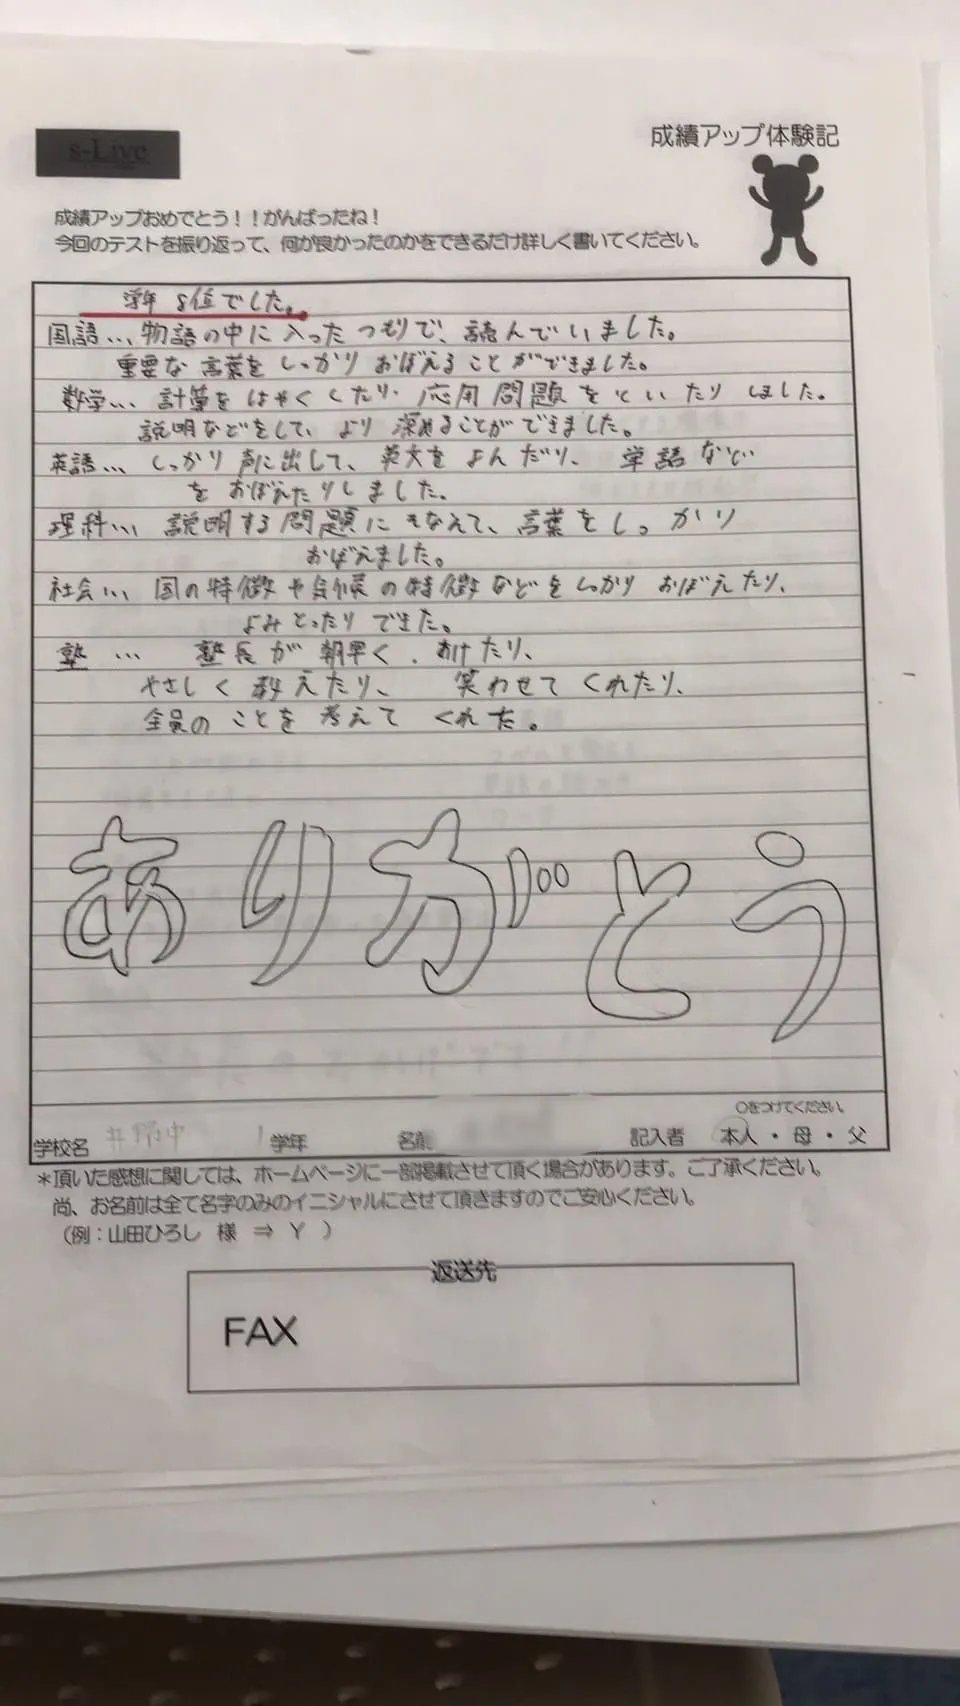 s-Live
成績アップ体験記
成績アップおめでとう！！がんばったね！
今回のテストを振り返って、何が良かったのかをできるだけ詳しく書いてください。
学年 8位でした。
国語… 物語の中に入ったつもりで、読んでいました。
重要な言葉をしっかりおぼえることができました。
数学… 計算をはやくしたり、応用問題をといたりしました。
説明などをして、より深めることができました。
英語… しっかり声に出して、英文をよんだり、単語など
をおぼえたりしました。
理科… 説明する問題にそなえて、言葉をしっかり
おぼえました。
社会… 国の特徴や気候の特徴などをしっかりおぼえたり、
よみとったりできた。
塾… 塾長が朝早く、あけたり、
やさしく教えたり、笑わせてくれたり、
全員のことを考えてくれた。
ありがとう
○をつけてください。
学校名 井野中 1学年 名前 記入者 本人・母・父
＊頂いた感想に関しては、ホームページに一部掲載させて頂く場合があります。ご了承ください。
尚、お名前は全て名字のみのイニシャルにさせて頂きますのでご安心ください。
（例：山田ひろし 様 ⇒ Y ）
返送先
FAX